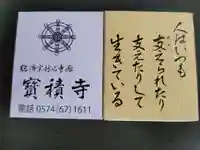 臨済宗妙心寺派
寳積寺
電話 0574(67)1611
人はいつも
支えられたり
支えたりして
生きている